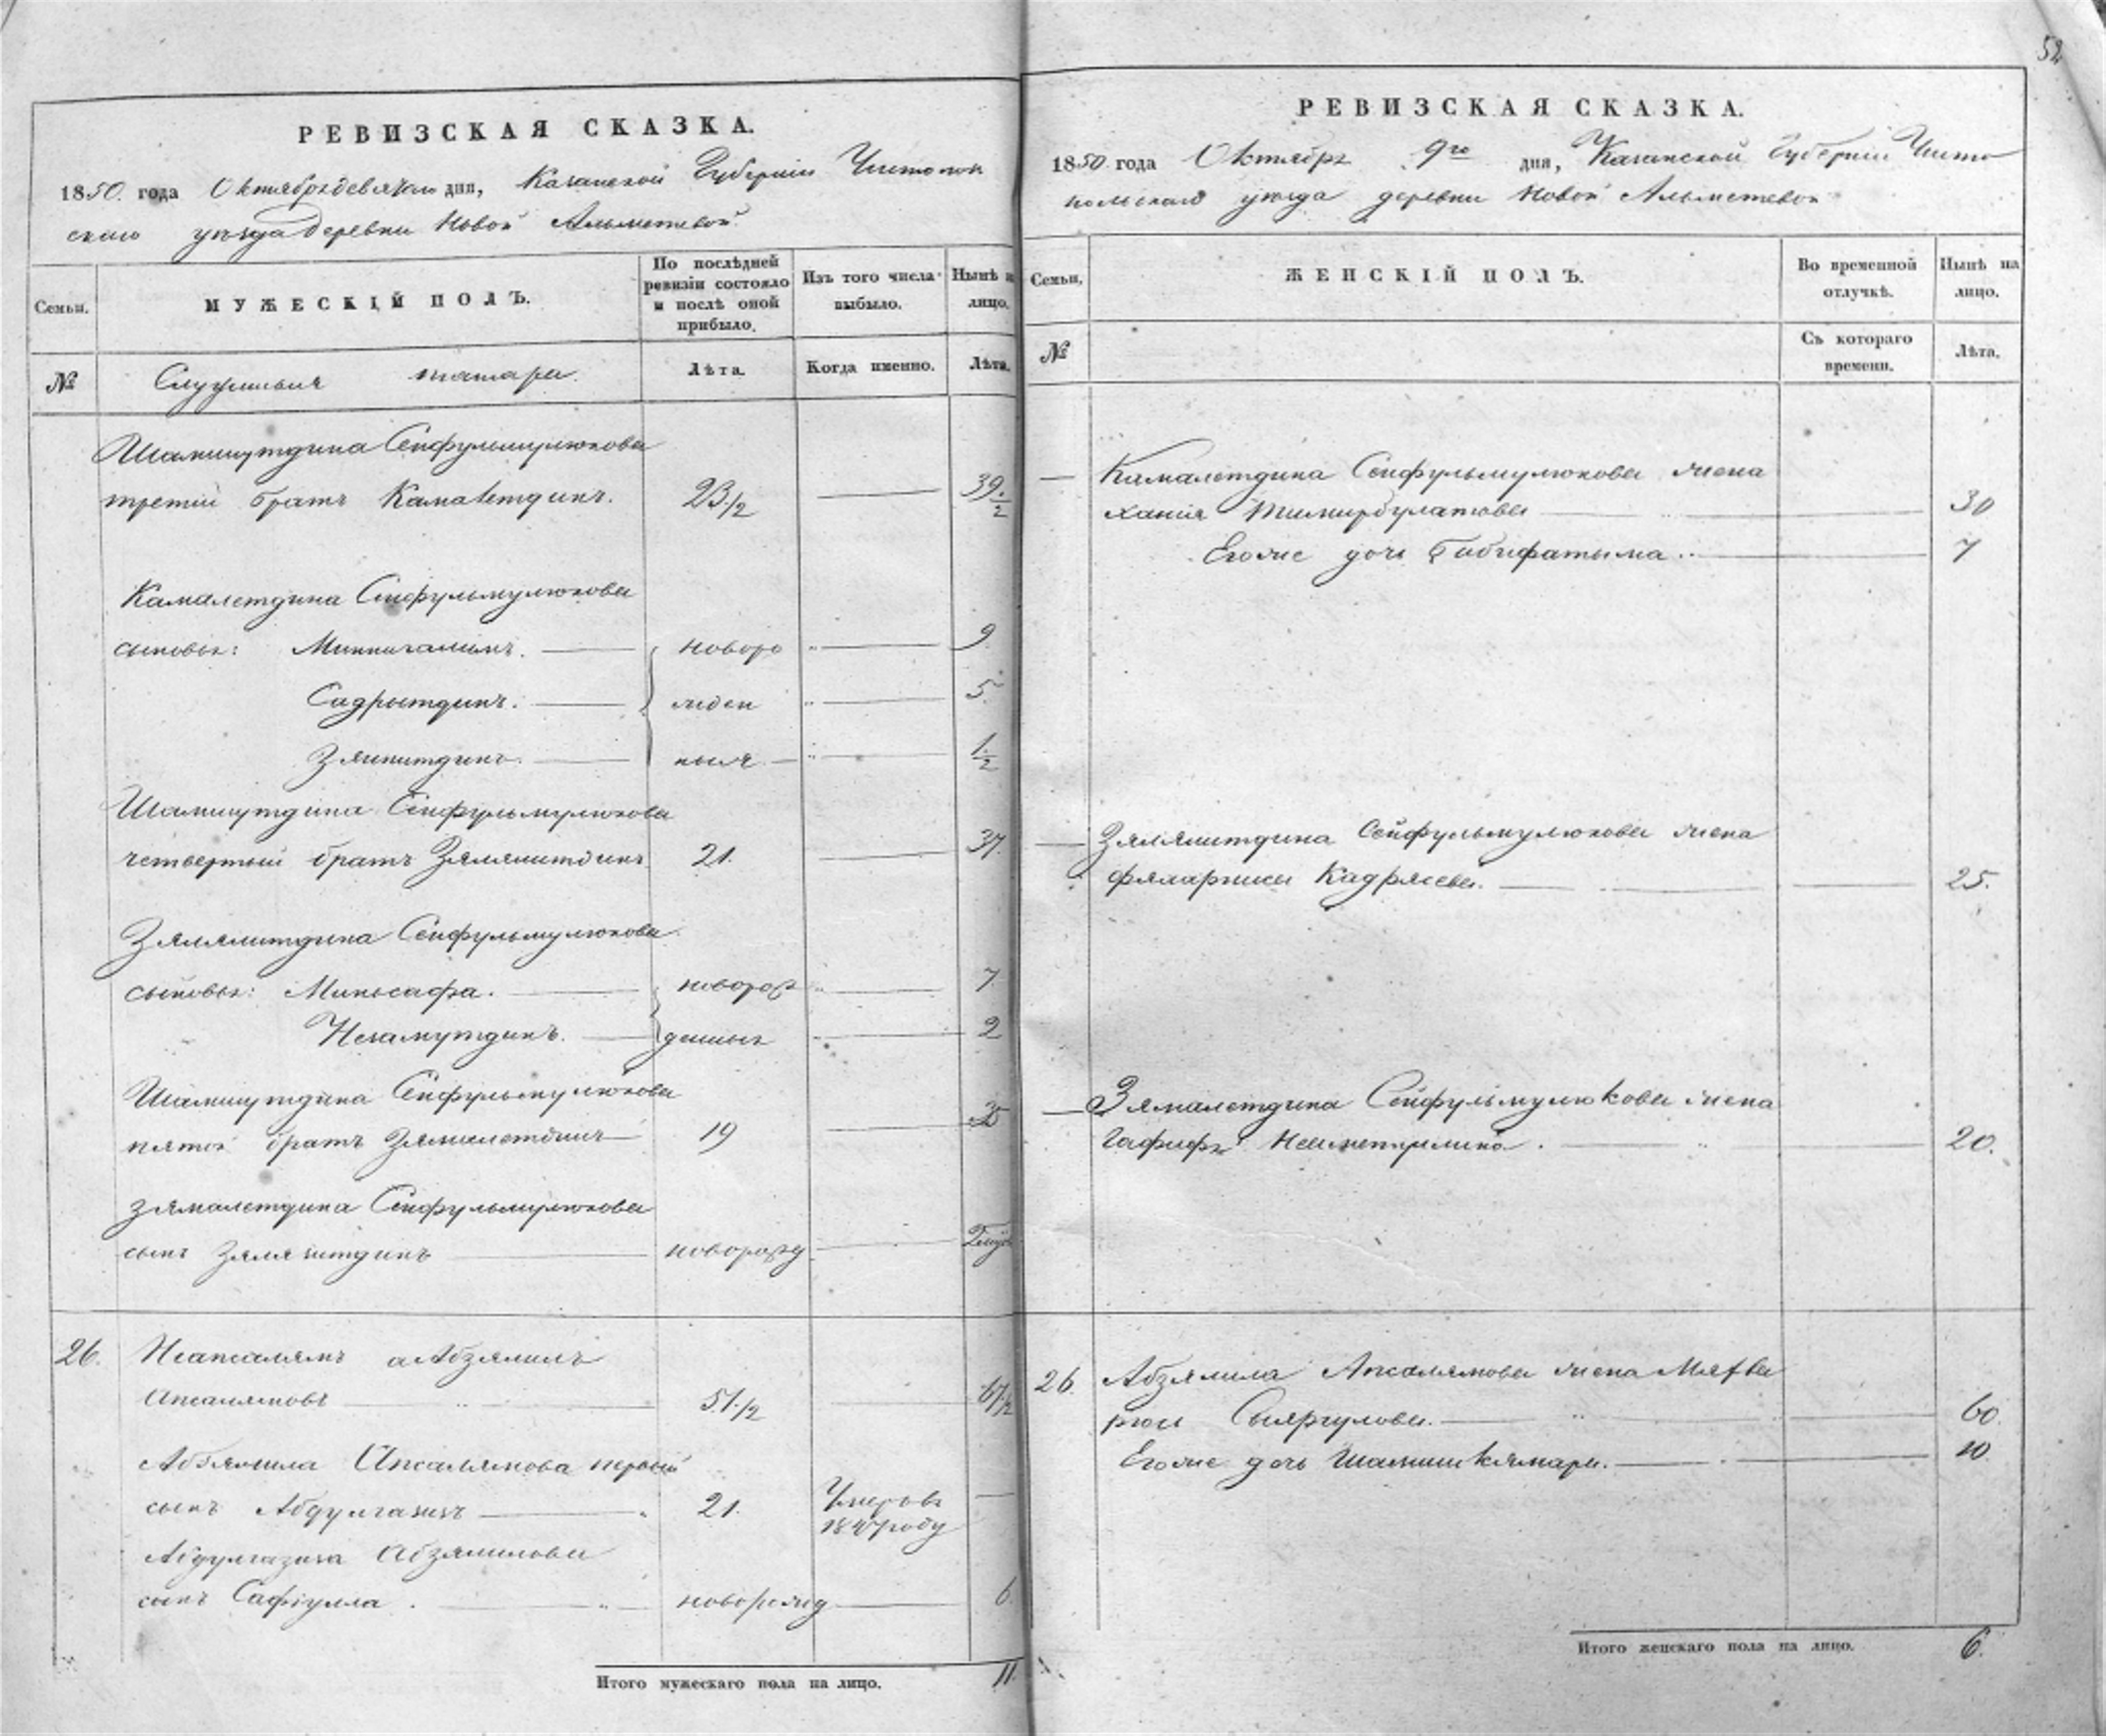 52
РЕВИЗСКАЯ СКАЗКА.
1850. года Октября девятаго дня, Казанской Губернiи Чистополь
скаго уѣзда деревни Новой Альметевой
Семьи.
МУЖЕСКIЙ ПОЛЪ.
По послѣдней ревизiи состояло и послѣ оной прибыло.
Изъ того числа выбыло.
Нынѣ на лицо.
№
Служилыя татары
Лѣта.
Когда именно.
Лѣта.
Шамшутдина Сейфульмулюкова
третiй братъ Камалетдинъ. 23 1/2 39 1/2
Камалетдина Сейфульмулюкова
сыновья: Миннигалимъ. новоро 9
Садрытдинъ. жден 5
Зяинитдинъ. ныя 1/2
Шамшутдина Сейфульмулюкова
четвертый братъ Зялялитдинъ 21. 37.
Зялялитдина Сейфульмулюкова
сыновья: Миньсафа. новорож 7
Незамутдинъ. денныя 2
Шамшутдина Сейфульмулюкова
пятой братъ Зямалетдинъ 19 35
Зямалетдина Сейфульмулюкова
сынъ Зяляитдинъ новорожд
26. Апсалямъ а Абзялилъ
Апсалямовъ 51 1/2 67 1/2
Абзялила Апсалямова первый
сынъ Абдулгазизъ 21. Умеръ въ
1847 году
Абдулгазиза Абзялилова
сынъ Сафiулла. новорожд 6
Итого мужескаго пола на лицо. 11.
РЕВИЗСКАЯ СКАЗКА.
1850. года Октября 9го дня, Казанской Губернiи Чисто
польскаго уѣзда деревни Новой Альметевой
Семьи.
ЖЕНСКIЙ ПОЛЪ.
Во временной отлучкѣ.
Нынѣ на лицо.
№
Съ котораго времени.
Лѣта.
Камалетдина Сейфульмулюкова жена
Хания Тимирбулатова 30
Егоже дочь Бибифатыма 7
Зялялитдина Сейфульмулюкова жена
Кадряева. 25.
Зямалетдина Сейфульмулюкова жена
Гафифа 20.
26. Абзялила Апсалямова жена
Сыяргулова. 60.
Егоже дочь Шамшикямаря. 10.
Итого женскаго пола на лицо. 6.